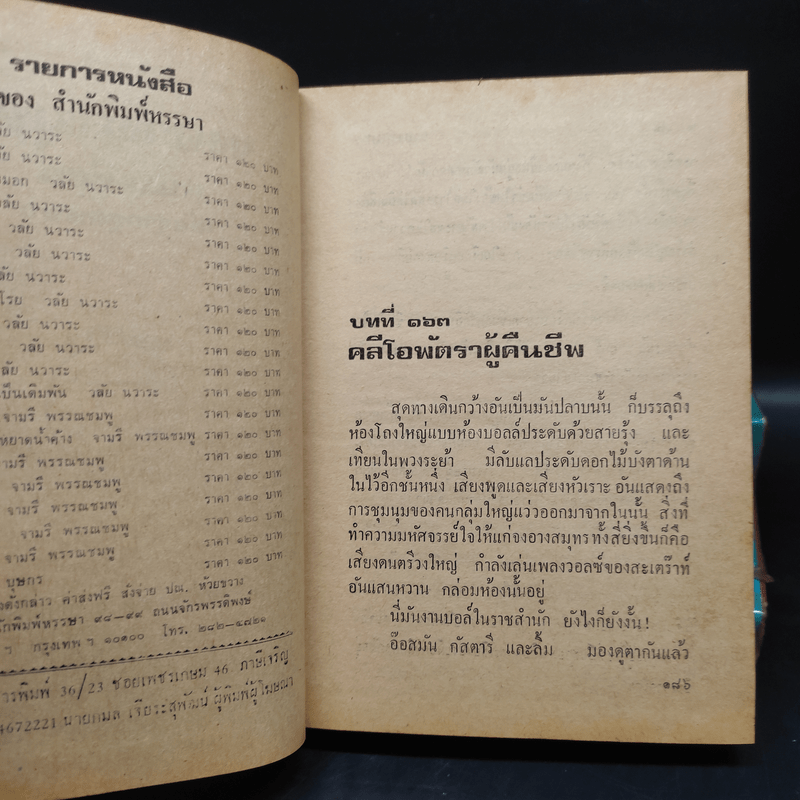 รายการหนังสือ
ของ สำนักพิมพ์หรรษา
วลัย นวาระ ราคา ๑๒๐ บาท
วลัย นวาระ ราคา ๑๒๐ บาท
วลัย นวาระ ราคา ๑๒๐ บาท
วลัย นวาระ ราคา ๑๒๐ บาท
วลัย นวาระ ราคา ๑๒๐ บาท
วลัย นวาระ ราคา ๑๒๐ บาท
วลัย นวาระ ราคา ๑๒๐ บาท
โรย วลัย นวาระ ราคา ๑๒๐ บาท
วลัย นวาระ ราคา ๑๒๐ บาท
วลัย นวาระ ราคา ๑๒๐ บาท
วลัย นวาระ ราคา ๑๒๐ บาท
เป็นเดิมพัน วลัย นวาระ ราคา ๑๒๐ บาท
จามรี พรรณชมพู ราคา ๑๒๐ บาท
หยาดน้ำค้าง จามรี พรรณชมพู ราคา ๑๒๐ บาท
จามรี พรรณชมพู ราคา ๑๒๐ บาท
จามรี พรรณชมพู ราคา ๑๒๐ บาท
จามรี พรรณชมพู ราคา ๑๒๐ บาท
จามรี พรรณชมพู ราคา ๑๒๐ บาท
จามรี พรรณชมพู ราคา ๑๒๐ บาท
บุษกร ราคา ๑๒๐ บาท
ดังกล่าว ค่าส่งฟรี สั่งจ่าย ปณ. ห้วยขวาง
สำนักพิมพ์หรรษา ๙๘-๙๙ ถนนจักรพรรดิพงษ์
ฯ กรุงเทพ ฯ ๑๐๑๐๐ โทร. ๒๘๒-๙๘๒๑
การพิมพ์ 36/23 ซอยเพชรเกษม 46 ภาษีเจริญ
4672221 นายกมล เจียระสุพัฒน์ ผู้พิมพ์ผู้โฆษณา
บทที่ ๑๖๓
คลีโอพัตราผู้คืนชีพ
สุดทางเดินกว้างอันเป็นมันปลาบนั้น ก็บรรลุถึง
ห้องโถงใหญ่แบบห้องบอลล์ประดับด้วยสายรุ้ง และ
เทียนในพวงระย้า มีลับแลประดับดอกไม้บังตาด้าน
ในไว้อีกชั้นหนึ่ง เสียงพูดและเสียงหัวเราะ อันแสดงถึง
การชุมนุมของคนกลุ่มใหญ่แว่วออกมาจากในนั้น สิ่งที่
ทำความมหัศจรรย์ใจให้แก่จงอางสมุทรทั้งสี่ยิ่งขึ้นก็คือ
เสียงดนตรีวงใหญ่ กำลังเล่นเพลงวอลซ์ของสะเตร๊าท์
อันแสนหวาน กล่อมห้องนั้นอยู่
นี่มันงานบอล์ในราชสำนัก ยังไงก็ยังงั้น!
อ๊อสมัน กัสตารี และลิ้ม มองดูตากันแล้ว
๑๘๖